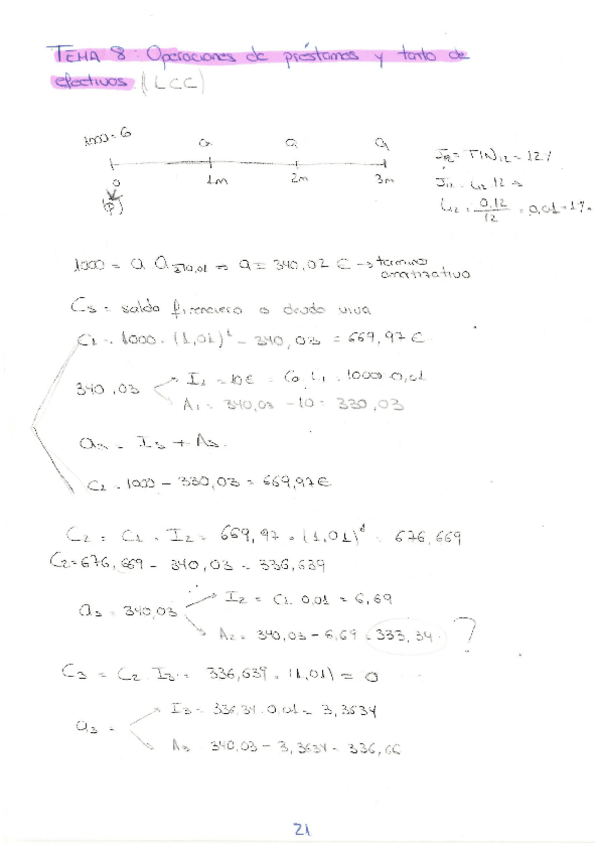 TEMA 8: Operaciones de préstamos y tanto de
efectivos. (LCC)
1000 = G a a a
0 1m 2m 3m
(P)
J12 = TIN12 = 12%
J12 = i12 · 12 ⇒
i12 = 0,12/12 = 0,01 = 1%
1000 = a a3|0,01 ⇒ a = 340,02 € → termino
amortizativo
Cs = saldo financiero o deuda viva
C1 = 1000 · (1,01)1 - 340,03 = 669,97 €
340,03
I1 = 10€ = C0 · i1 = 1000 · 0,01
A1 = 340,03 - 10 = 330,03
as = Is + As
C1 = 1000 - 330,03 = 669,97€
C2 = C1 · I2 = 669,97 · (1,01)1 = 676,669
C2 = 676,669 - 340,03 = 336,639
a3 = 340,03
I2 = C1 · 0,01 = 6,69
A2 = 340,03 - 6,69 = 333,34 ?
C3 = C2 · I3 = 336,639 · (1,01) = 0
a3 =
I3 = 336,34 · 0,01 = 3,3634
A3 = 340,03 - 3,3634 = 336,66
21